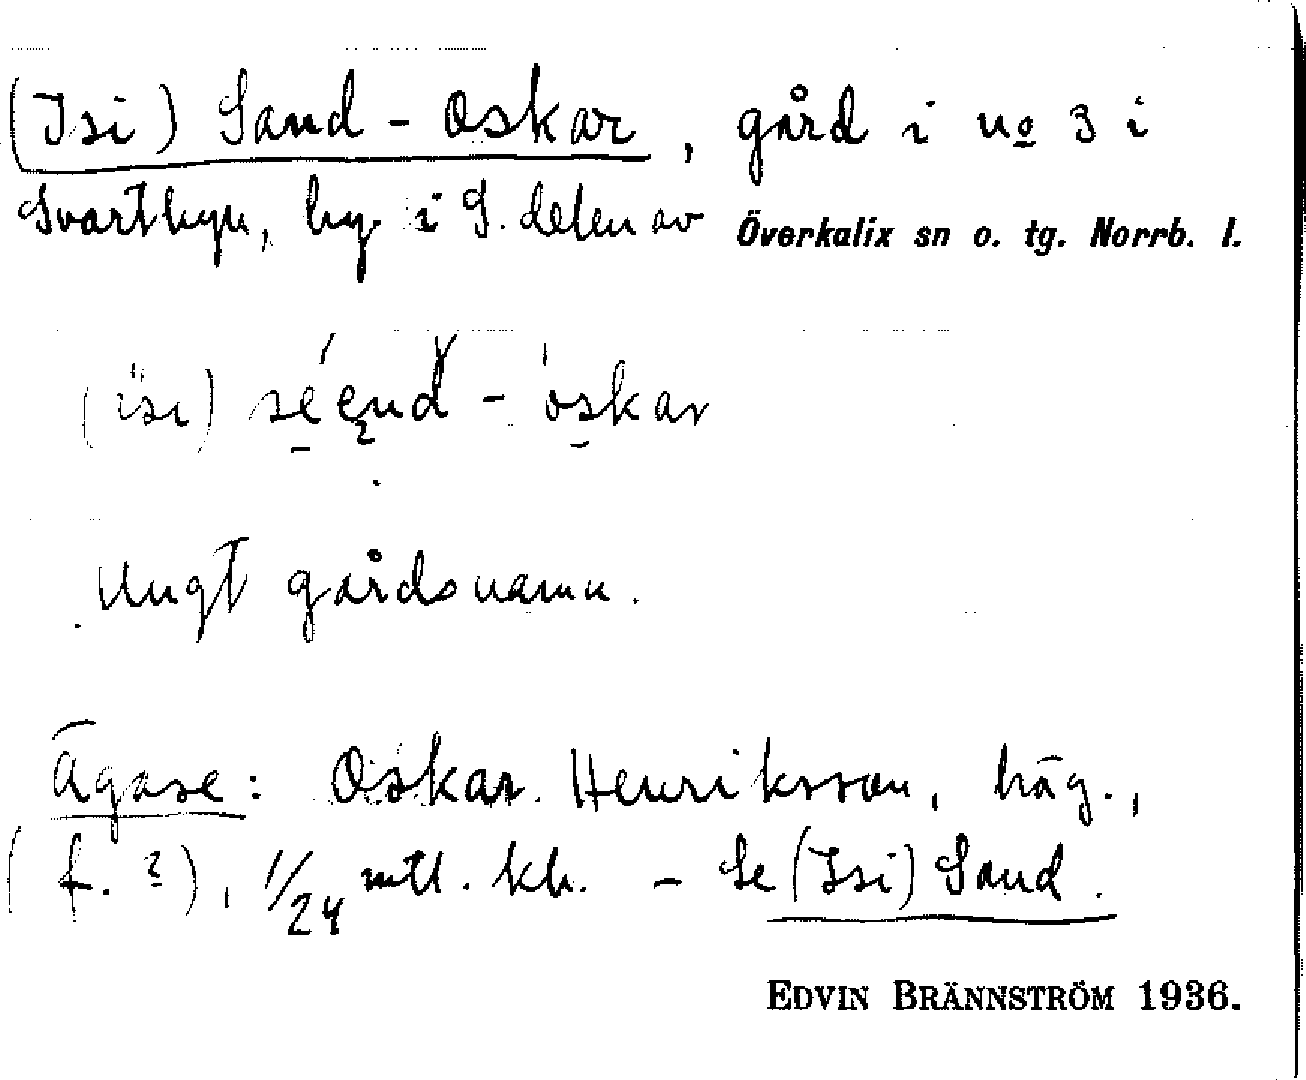 (Isi) Sand-Oskar, gård i no 3 i
Svartbyn, by i S. delen av Överkalix sn o. tg. Norrb. l.
(isi) séend-òskar
Ungt gårdsnamn.
Ägare: Oskar Henriksson, häg.,
(f. ?), 1/24 mtl. kh. - Se (Isi) Sand.
EDVIN BRÄNNSTRÖM 1936.